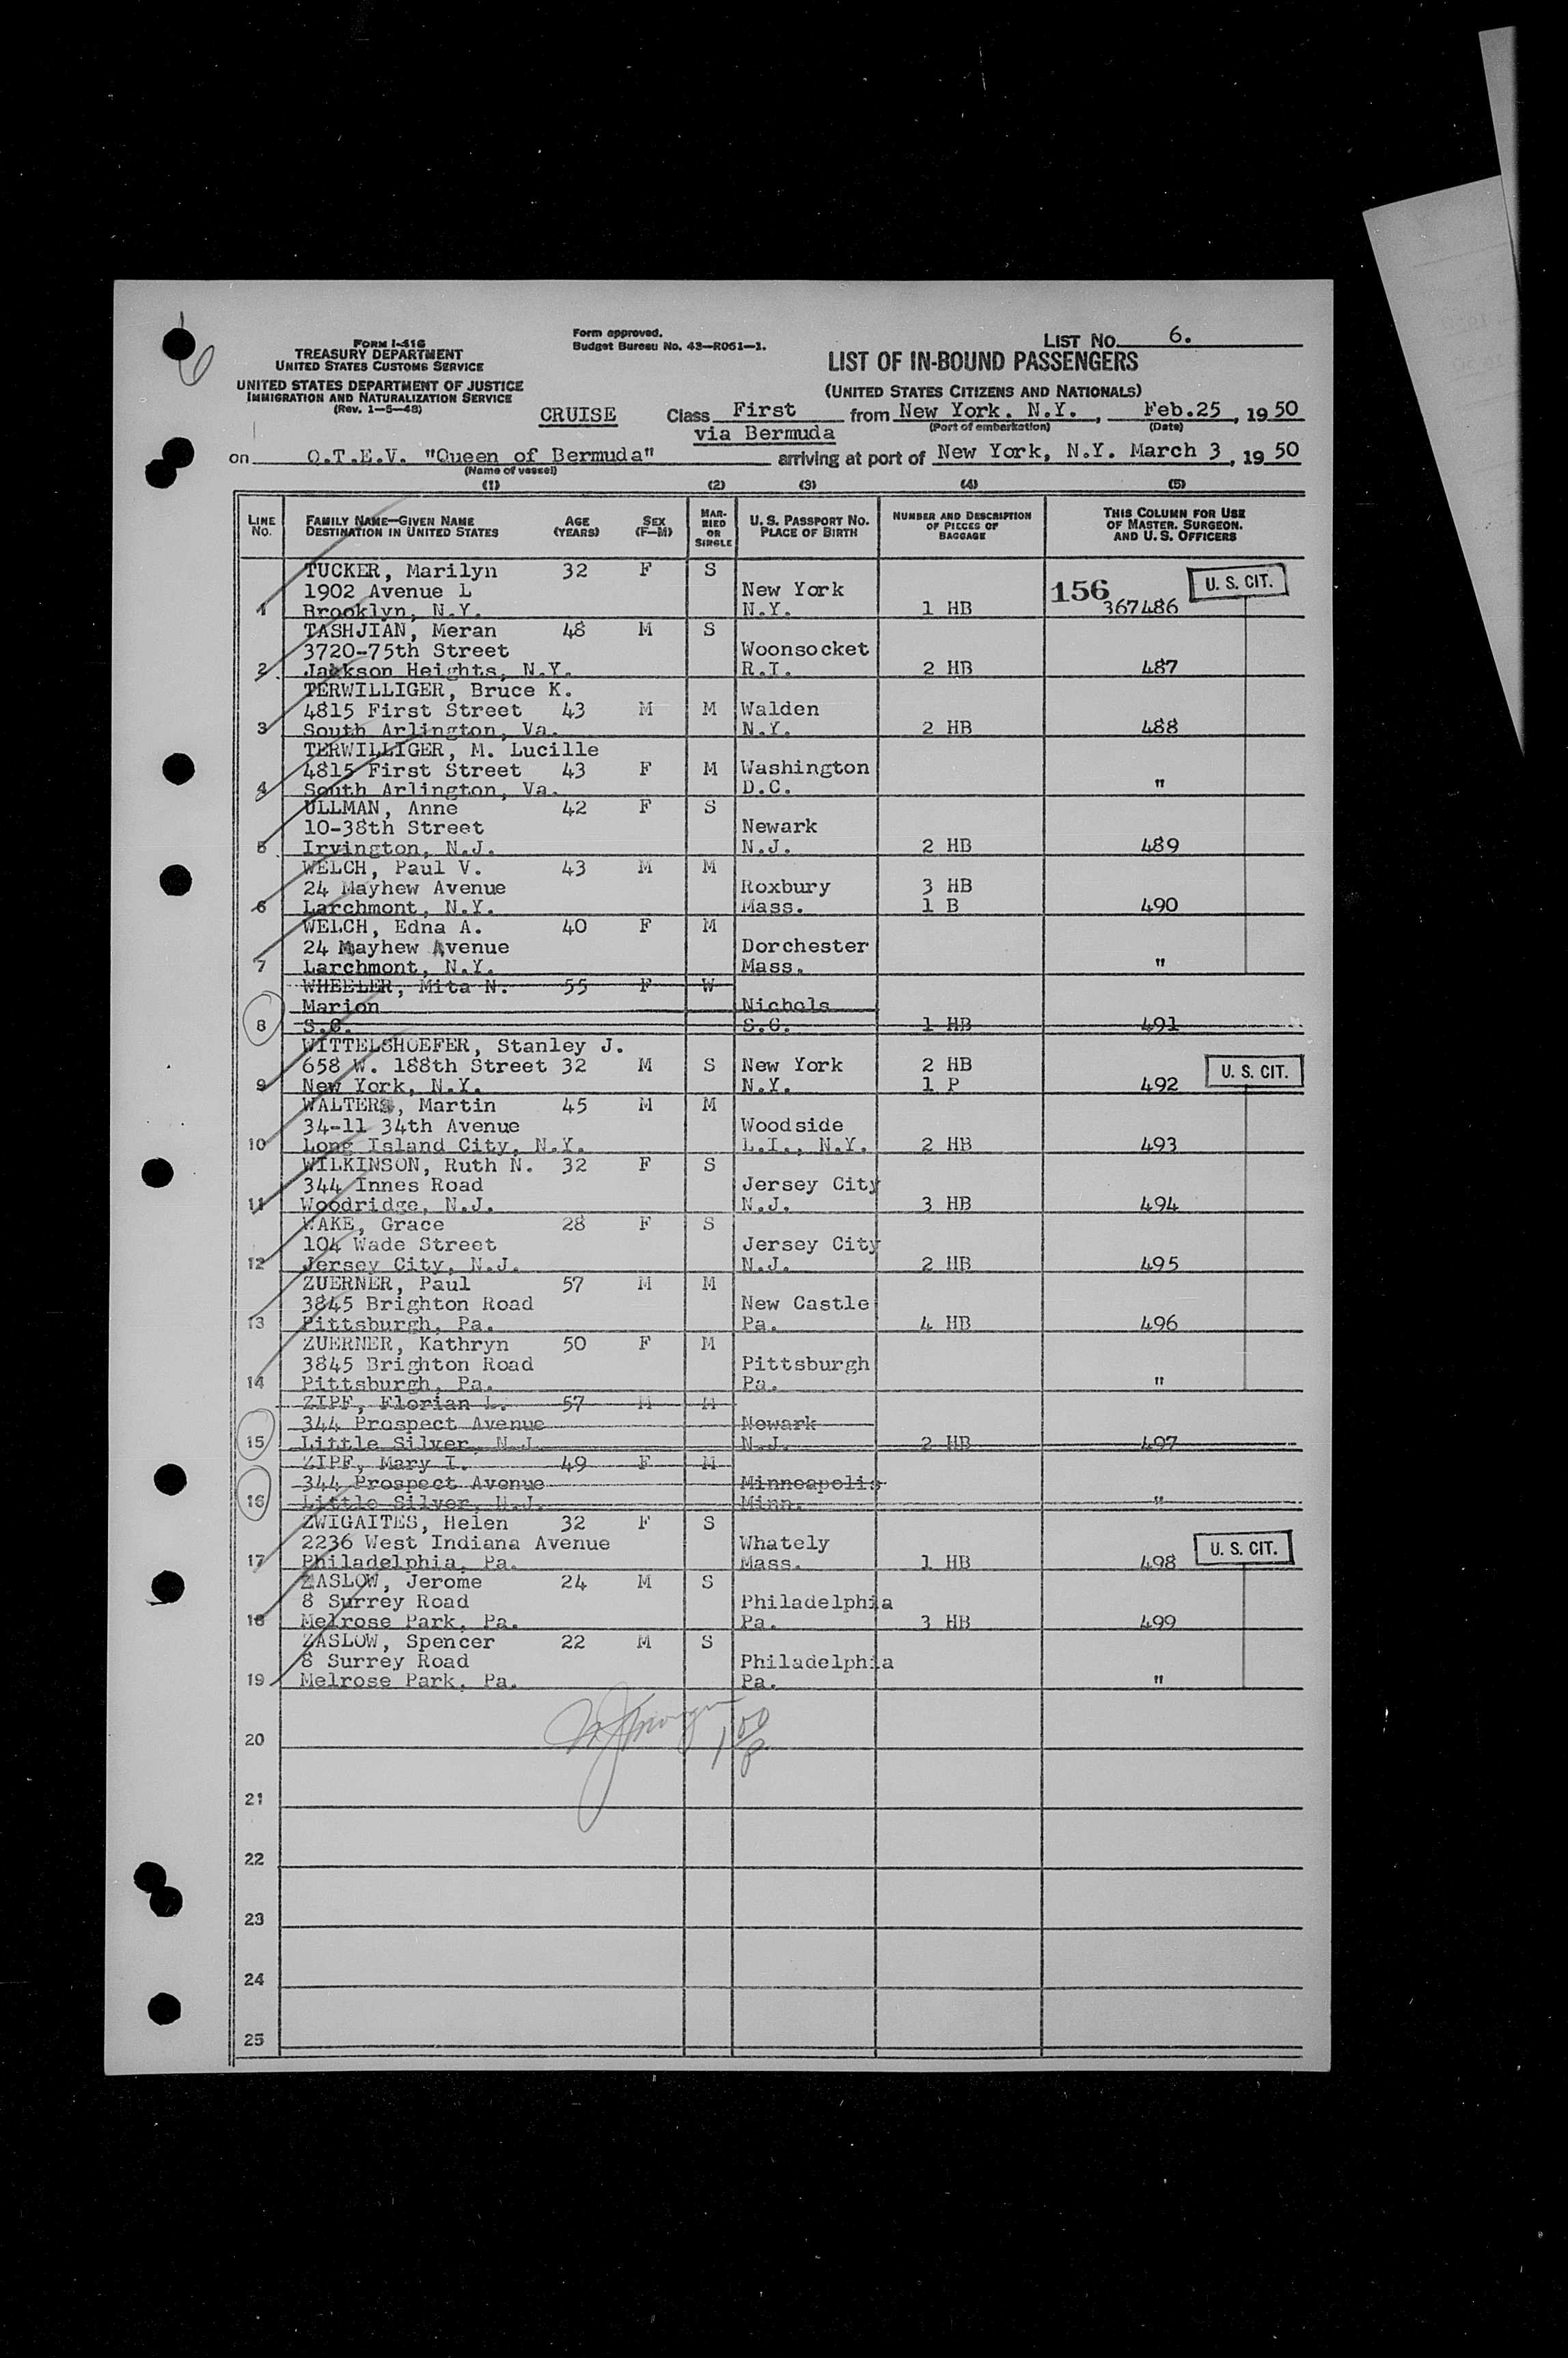 6
FORM I-416
TREASURY DEPARTMENT
UNITED STATES CUSTOMS SERVICE
UNITED STATES DEPARTMENT OF JUSTICE
IMMIGRATION AND NATURALIZATION SERVICE
(Rev. 1-5-48)
Form approved.
Budget Bureau No. 43-R061-1.
LIST No. 6.
LIST OF IN-BOUND PASSENGERS
(UNITED STATES CITIZENS AND NATIONALS)
CRUISE Class First from New York. N.Y., Feb.25, 1950
(Port of embarkation) (Date)
via Bermuda
on Q.T.E.V. "Queen of Bermuda" arriving at port of New York, N.Y. March 3, 1950
(Name of vessel)
(1) (2) (3) (4) (5)
LINE No. FAMILY NAME—GIVEN NAME DESTINATION IN UNITED STATES AGE (YEARS) SEX (F—M) MARRIED OR SINGLE U. S. PASSPORT No. PLACE OF BIRTH NUMBER AND DESCRIPTION OF PIECES OF BAGGAGE THIS COLUMN FOR USE OF MASTER, SURGEON, AND U. S. OFFICERS
TUCKER, Marilyn 32 F S
1902 Avenue L New York 156 U. S. CIT.
1 Brooklyn, N.Y. N.Y. 1 HB 367486
TASHJIAN, Meran 48 M S
3720-75th Street Woonsocket
2 Jackson Heights, N.Y. R.I. 2 HB 487
TERWILLIGER, Bruce K.
4815 First Street 43 M M Walden
3 South Arlington, Va. N.Y. 2 HB 488
TERWILLIGER, M. Lucille
4815 First Street 43 F M Washington
4 South Arlington, Va. D.C. "
ULLMAN, Anne 42 F S
10-38th Street Newark
5 Irvington, N.J. N.J. 2 HB 489
WELCH, Paul V. 43 M M
24 Mayhew Avenue Roxbury 3 HB
6 Larchmont, N.Y. Mass. 1 B 490
WELCH, Edna A. 40 F M
24 Mayhew Avenue Dorchester
7 Larchmont, N.Y. Mass. "
WHEELER, Mita N. 55 F W
Marion Nichols
8 S.C. S.C. 1 HB 491
WITTELSHOEFER, Stanley J.
658 W. 188th Street 32 M S New York 2 HB U. S. CIT.
9 New York, N.Y. N.Y. 1 P 492
WALTERS, Martin 45 M M
34-11 34th Avenue Woodside
10 Long Island City, N.Y. L.I., N.Y. 2 HB 493
WILKINSON, Ruth N. 32 F S
344 Innes Road Jersey City
11 Woodridge, N.J. N.J. 3 HB 494
WAKE, Grace 28 F S
104 Wade Street Jersey City
12 Jersey City, N.J. N.J. 2 HB 495
ZUERNER, Paul 57 M M
3845 Brighton Road New Castle
13 Pittsburgh, Pa. Pa. 4 HB 496
ZUERNER, Kathryn 50 F M
3845 Brighton Road Pittsburgh
14 Pittsburgh, Pa. Pa. "
ZIPF, Florian L. 57 M M
344 Prospect Avenue Newark
15 Little Silver, N.J. N.J. 2 HB 497
ZIPF, Mary I. 49 F M
344 Prospect Avenue Minneapolis
16 Little Silver, N.J. Minn. "
ZWIGAITES, Helen 32 F S
2236 West Indiana Avenue Whately U. S. CIT.
17 Philadelphia, Pa. Mass. 1 HB 498
ZASLOW, Jerome 24 M S
8 Surrey Road Philadelphia
18 Melrose Park, Pa. Pa. 3 HB 499
ZASLOW, Spencer 22 M S
8 Surrey Road Philadelphia
19 Melrose Park, Pa. Pa. "
20
21
22
23
24
25